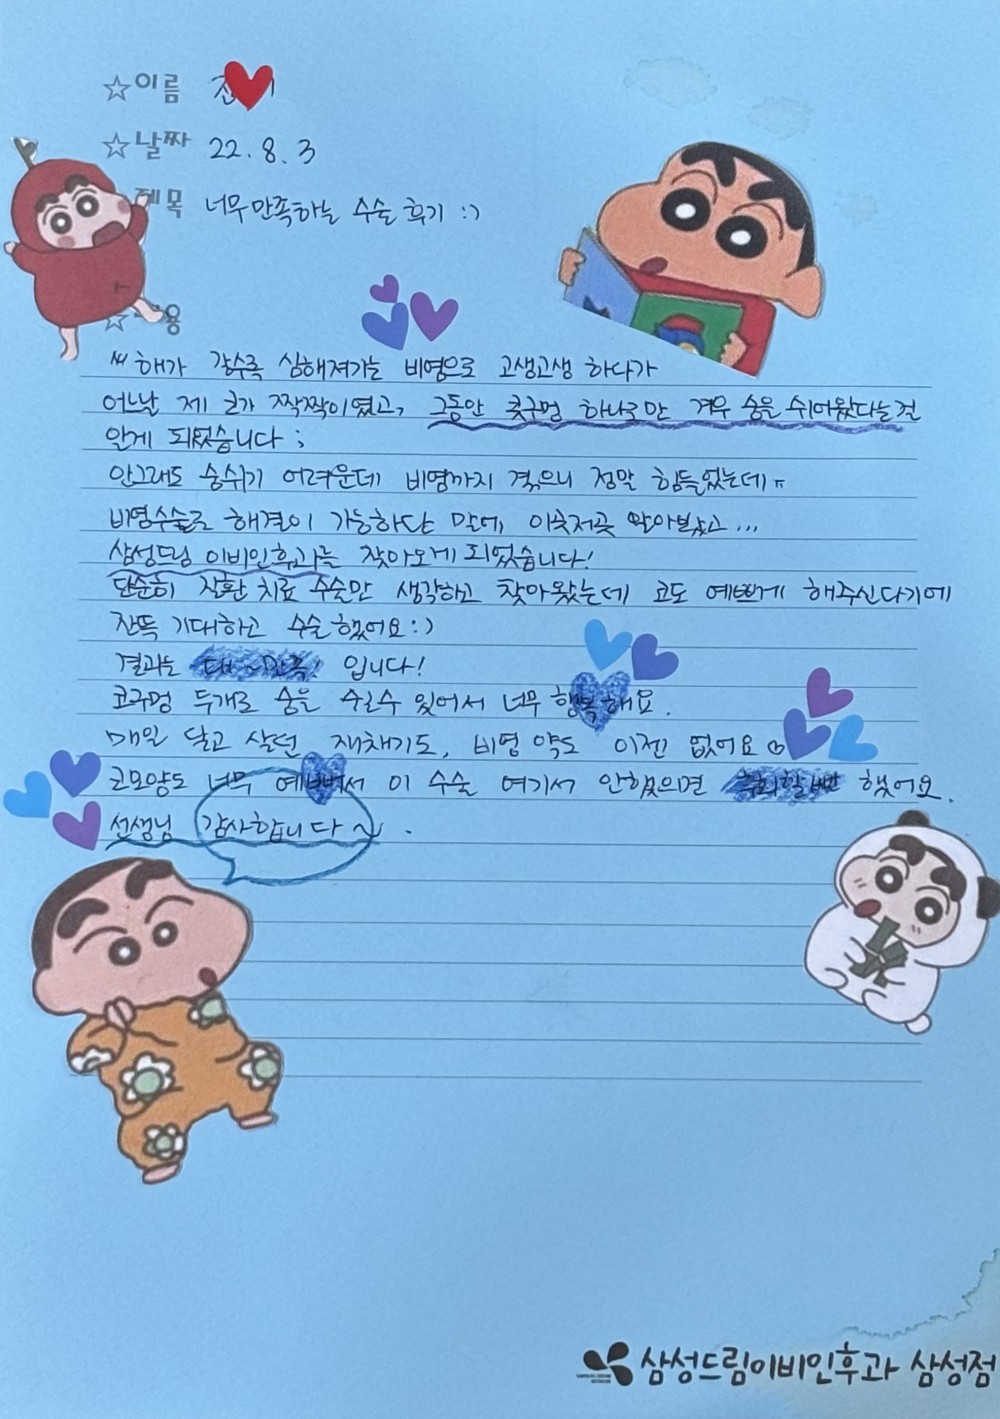 ☆이름
☆날짜 22.8.3
제목 너무만족하는 수술 후기 :)
☆ 용
" 해가 갈수록 심해져가는 비염으로 고생고생 하다가
어느날 제 코가 짝짝이였고, 그동안 콧구멍 하나로만 겨우 숨을 쉬어왔다는걸
알게 되었습니다 ;
안그래도 숨쉬기 어려운데 비염까지 겪으니 정말 힘들었는데ㅠ
비염수술로 해결이 가능하단 말에, 이곳저곳 알아보았고...
삼성드림 이비인후과를 찾아오게 되었습니다!
단순히 질환 치료 수술만 생각하고 찾아왔는데 코도 예쁘게 해주신다기에
잔뜩 기대하고 수술했어요:)
결과는 대~만족! 입니다!
코구멍 두개로 숨을 쉴수 있어서 너무 행복해요.
매일 달고 살던 재채기도, 비염 약도 이젠 없어요♡
코모양도 너무 예뻐서 이 수술 여기서 안했으면 후회할뻔 했어요.
선생님 감사합니다~.
삼성드림이비인후과 삼성점